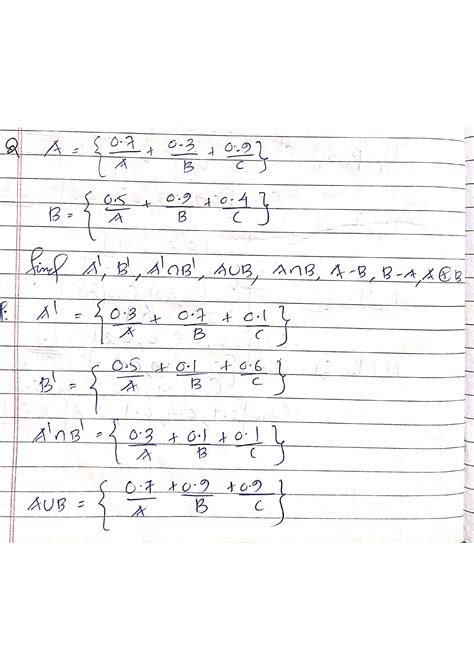 Q A = { 0.7/A + 0.3/B + 0.9/C }
B = { 0.5/A + 0.9/B + 0.4/C }
find A', B', A'∩B', A∪B, A∩B, A-B, B-A, A⊕B
A' = { 0.3/A + 0.7/B + 0.1/C }
B' = { 0.5/A + 0.1/B + 0.6/C }
A'∩B' = { 0.3/A + 0.1/B + 0.1/C }
A∪B = { 0.7/A + 0.9/B + 0.9/C }